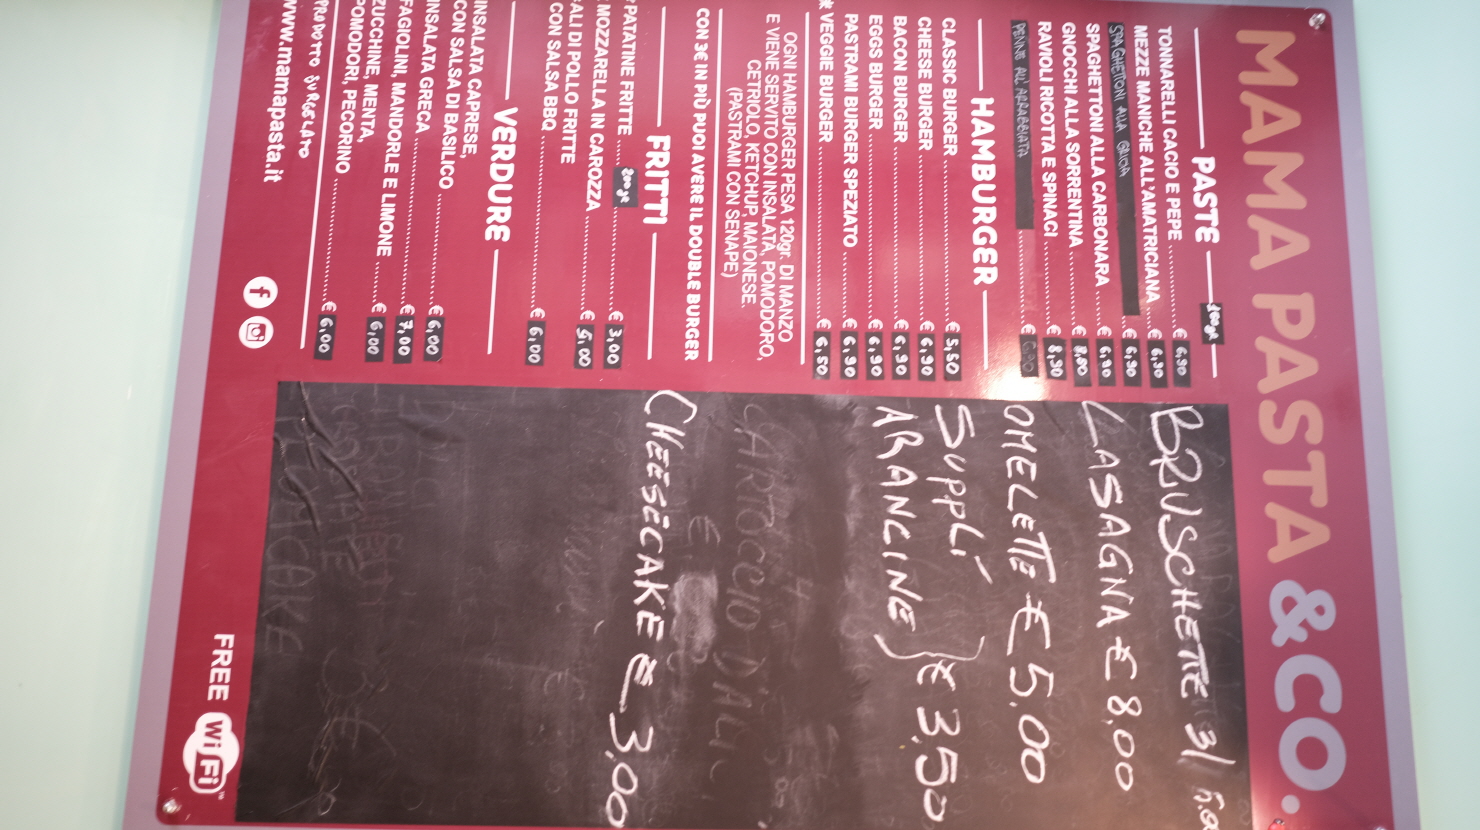 MAMA PASTA &CO.
PASTE
TONNARELLI CACIO E PEPE € 6,90
MEZZE MANICHE ALL'AMATRICIANA € 6,90
SPAGHETTONI ALLA GRICIA € 6,90
SPAGHETTONI ALLA CARBONARA € 6,90
GNOCCHI ALLA SORRENTINA € 8,90
RAVIOLI RICOTTA E SPINACI € 8,90
PENNE ALL'ARRABBIATA € 6,90
HAMBURGER
CLASSIC BURGER € 5,50
CHEESE BURGER € 6,90
BACON BURGER € 6,90
EGGS BURGER € 6,90
PASTRAMI BURGER SPEZIATO € 6,90
* VEGGIE BURGER € 6,50
OGNI HAMBURGER PESA 120gr. DI MANZO
E VIENE SERVITO CON INSALATA, POMODORO,
CETRIOLO, KETCHUP, MAIONESE.
(PASTRAMI CON SENAPE)
CON 3€ IN PIÙ PUOI AVERE IL DOUBLE BURGER
FRITTI
* PATATINE FRITTE 200gr € 3,00
MOZZARELLA IN CAROZZA € 5,00
ALI DI POLLO FRITTE
CON SALSA BBQ € 6,00
VERDURE
INSALATA CAPRESE,
CON SALSA DI BASILICO € 6,00
INSALATA GRECA € 7,00
FAGIOLINI, MANDORLE E LIMONE € 6,00
ZUCCHINE, MENTA,
POMODORI, PECORINO € 6,00
PRODOTTO SURGELATO
www.mamapasta.it
BRUSCHETTE 3/
LASAGNA € 8,00
OMELETTE € 5,00
SUPPLÌ
ARANCINE } € 3,50
CARTOCCIO D'ALI
CHEESECAKE € 3,00
FREE Wi Fi